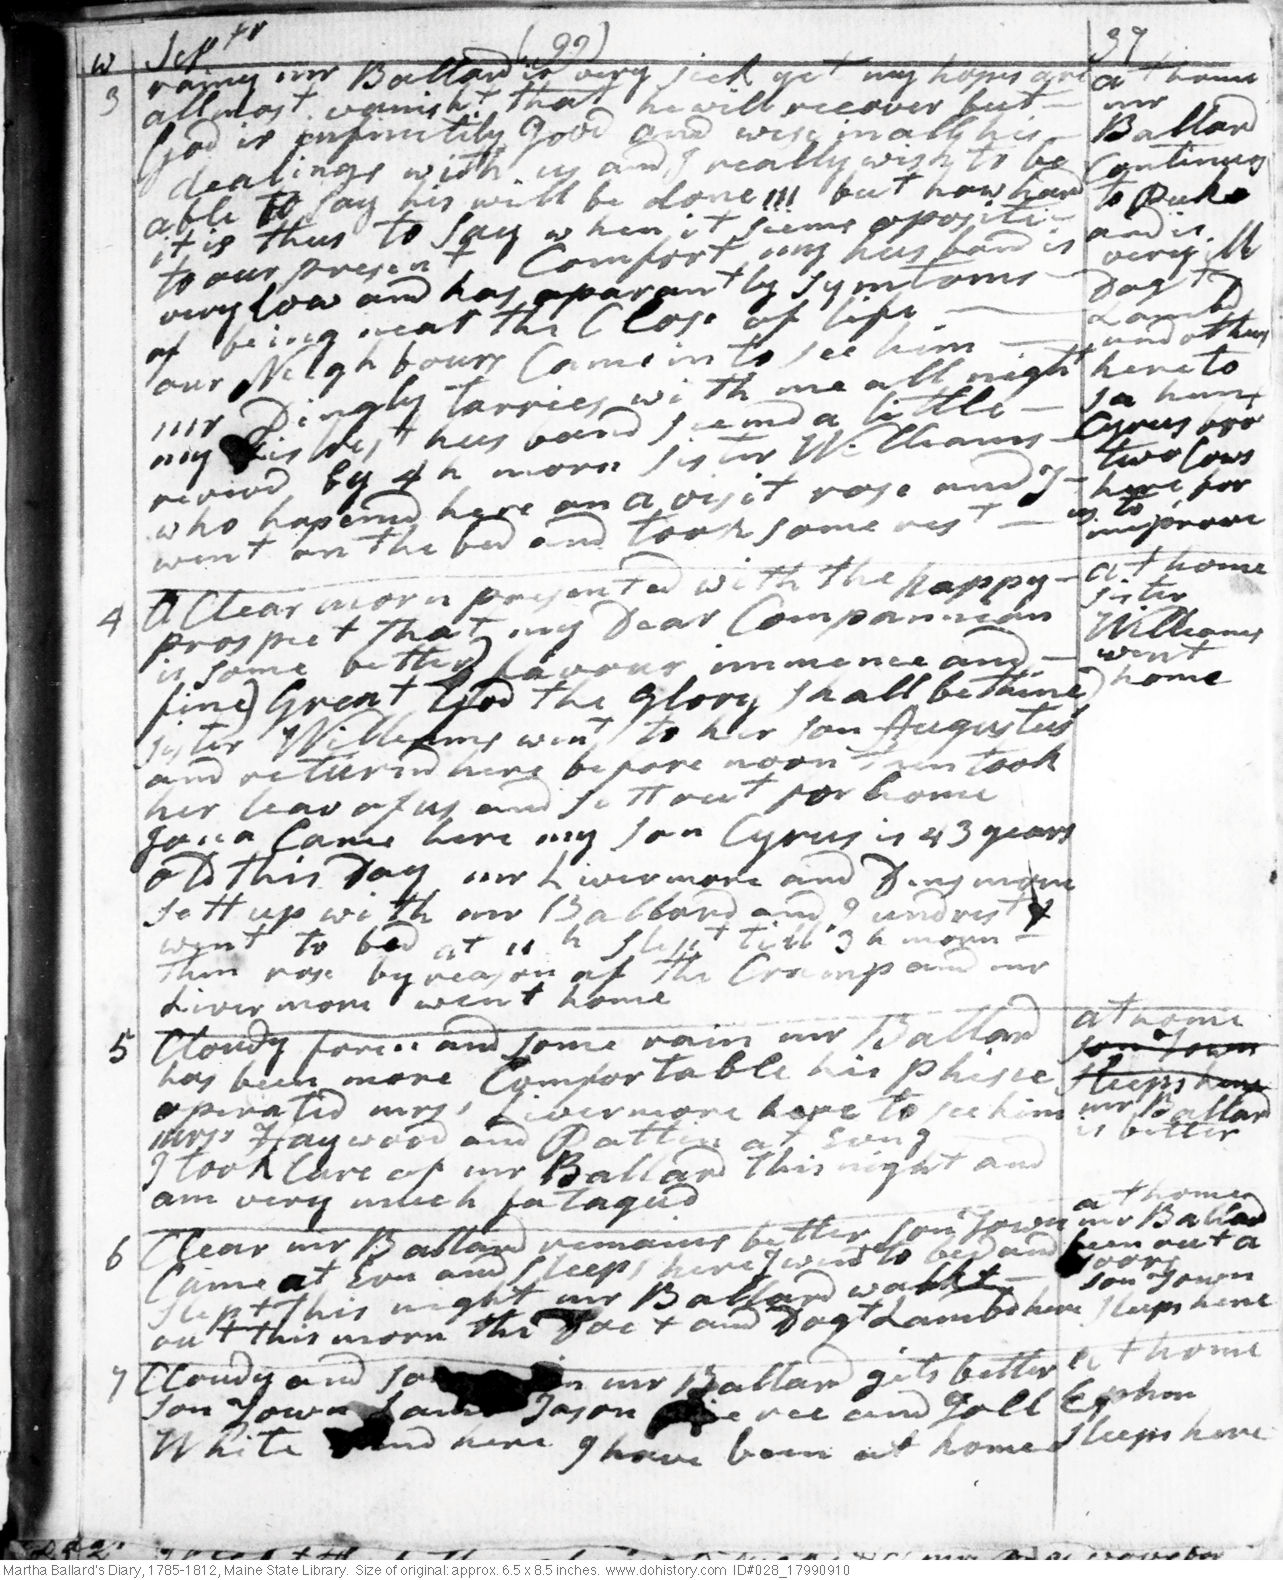 W Septr (99) 37
3 rainy mr Ballard is very sick yet my hopes are
allmost vanisht that he will recover but
God is infinitily Good and wise in all his
dealings with us and I really wish to be
able to say his will be done!!! but how hard
it is thus to say when it seems oposite
to our present Comfort my husband is
very low and has aparantly symtoms
of being near the Close of life
our Neighbours Came in to see him
mr Dingly tarries with me all night
my husband seemd a little
revivd by 4 h morn sister Williams
who hapend here on a visit rose and I
went on the bed and took some rest
at home
mr
Ballard
Continues
to Puke
and is
very ill
Dagt D
Lambd
and others
here to
se him
Cyrus bro
two Cows
here for
us to
improve
4 A Clear morn presented with the happy
prospect that my Dear Compannion
is some better) favour immence and
fine) Great God the glory shall be thine)
sister Williams went to her son Augustus
and returnd here before noon then took
her leav of us and sett out for home
Came here my son Cyrus is 43 years
old this Day mr Livermore and Densmore
sett up with mr Ballard and I undrest &
went to bed at 11 h slept till 3 h morn
then rose by reason of the Cramp and mr
Livermore went home
at home
sister
Williams
went
home
5 Cloudy foren and some rain mr Ballard
has been more Comfortable his Phisic
operated mrss Livermore here to see him
mrss Haywood and Pattin at Evng
I took Care of mr Ballard this night and
am very much fatagud
at home
son Town
sleeps here
mr Ballard
is better
6 Clear mr Ballard remains better son Town
Came at Evn and sleeps here I went to bed and
slept this night mr Ballard walkt
out this morn the Doct and Dagt Lambd here
at home
mr Ballard
been out a
doors
son Town
sleeps here
7 Cloudy and mr Ballard gets better
son Town Jason and Joll
White here I have been at home
at home
Ephm
sleeps here
Martha Ballard's Diary, 1785-1812, Maine State Library. Size of original: approx. 6.5 x 8.5 inches. www.dohistory.com ID#028_17990910